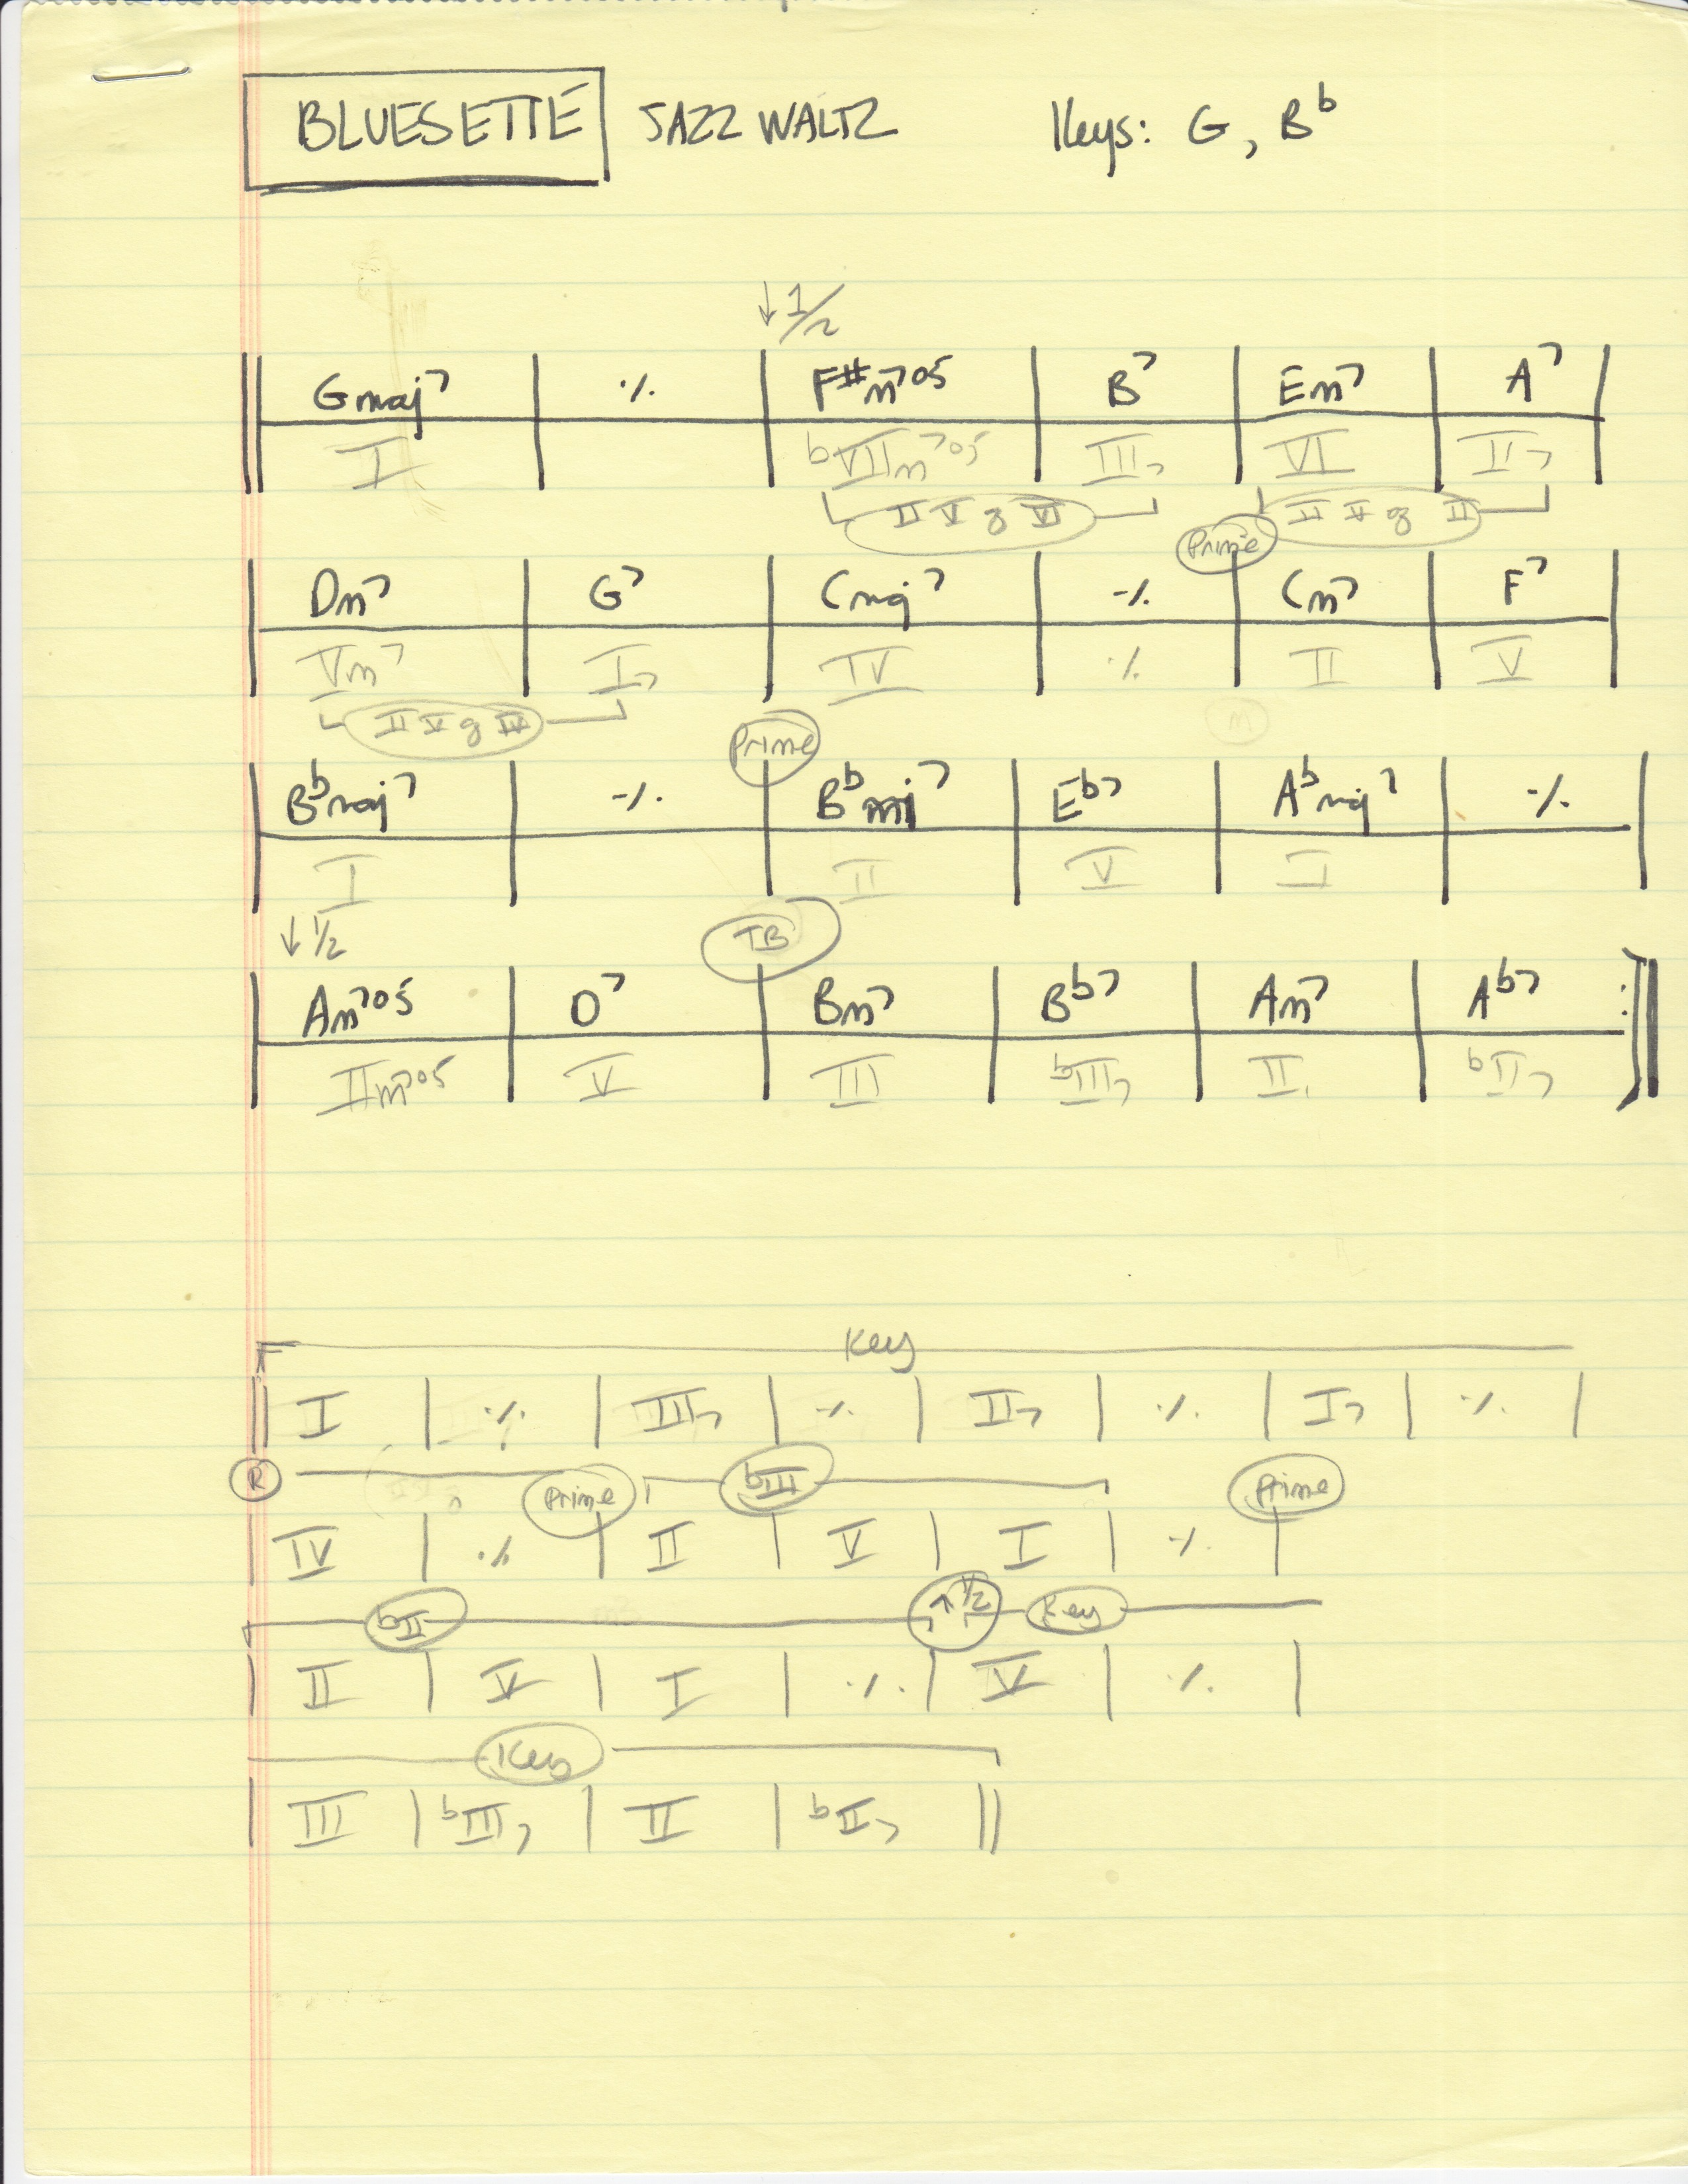 BLUESETTE JAZZ WALTZ Keys: G, Bb
↓ 1/2
Gmaj7 | ٪ | F#m7b5 | B7 | Em7 | A7
I | bVIIm7b5 | III7 | VI | II7
II V of VI | II V of II
Prime
Dm7 | G7 | Cmaj7 | ٪ | Cm7 | F7
Vm7 | I7 | IV | ٪ | II | V
II V of IV
Prime
m
Bbmaj7 | ٪ | Eb7 | Abmaj7 | ٪
I | II | V | I
↓ 1/2 TB
Am7b5 | D7 | Bm7 | Bb7 | Am7 | Ab7
IIm7b5 | V | III | bIII7 | II | bII7
Key
I | ٪ | III7 | ٪ | II7 | ٪ | I7 | ٪
R Prime bIII Prime
IV | ٪ | II | V | I | ٪
bII ↑ 1/2 Key
II | V | I | ٪ | V | ٪
Key
III | bIII7 | II | bII7